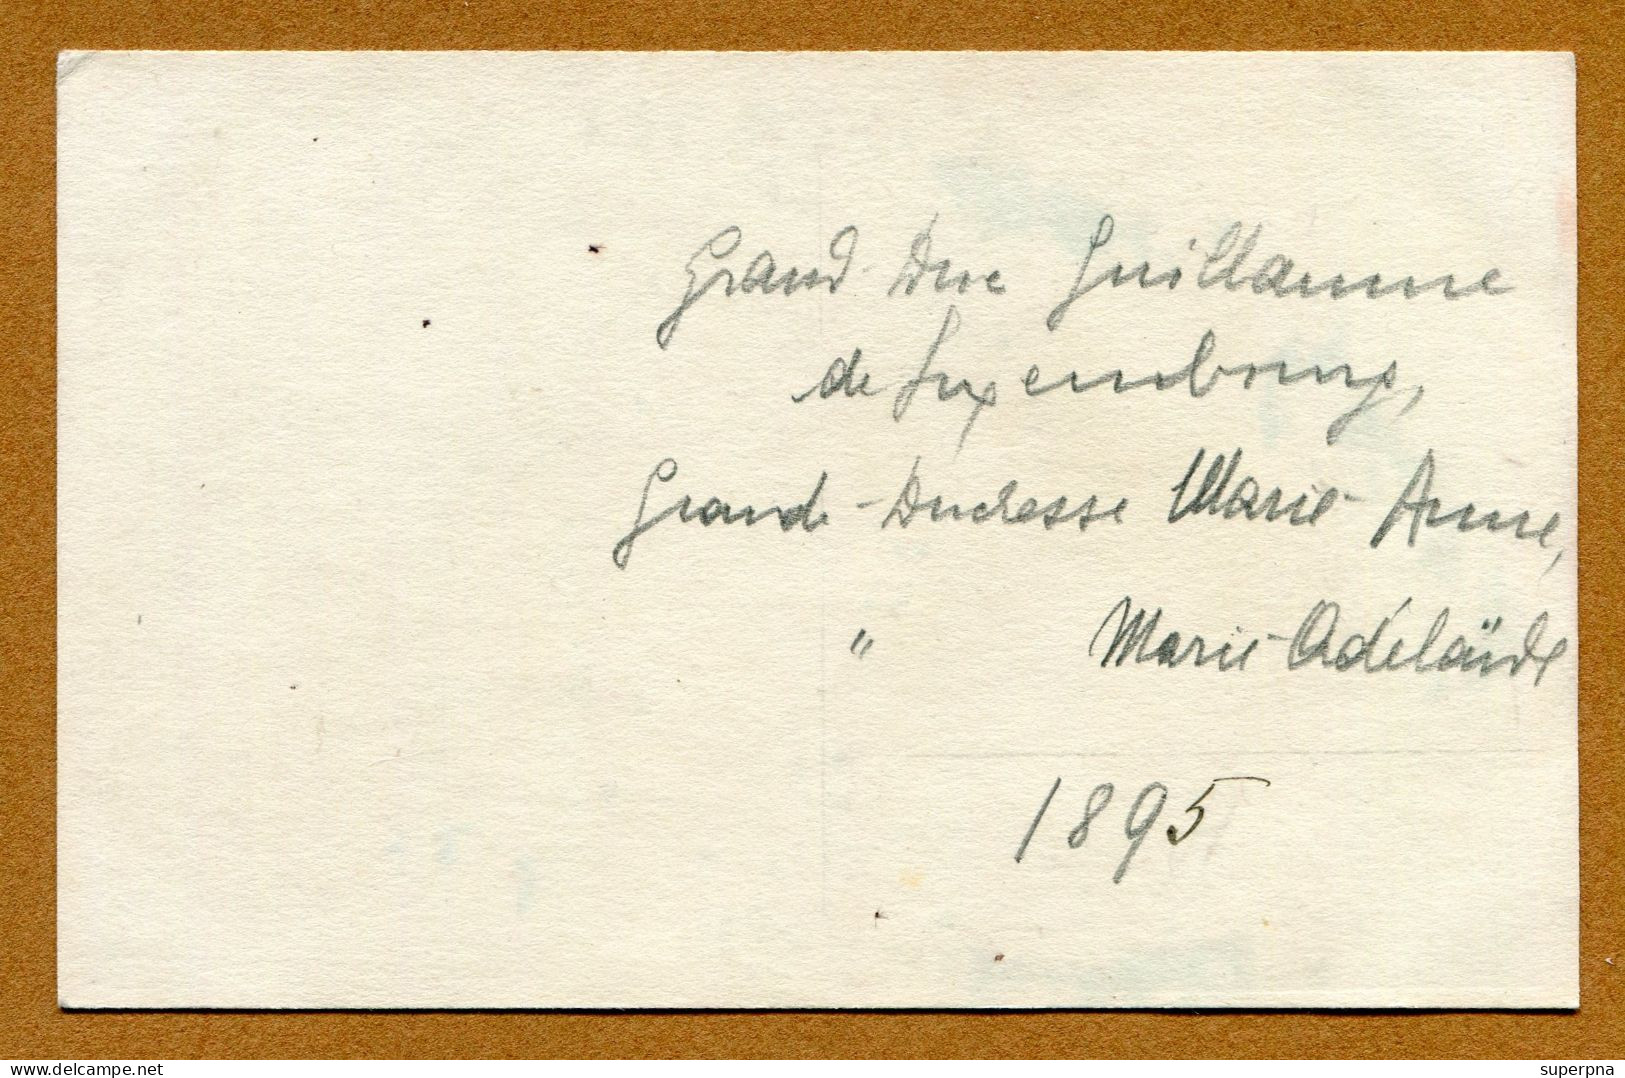 Grand-Duc Guillaume
de Luxembourg,
Grande-Duchesse Marie-Anne,
" Marie-Adélaïde
1895
www.delcampe.net
superpna